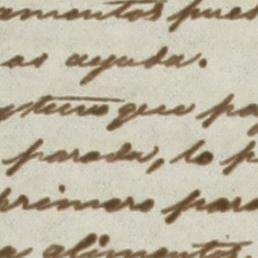 amentos pues
os ayuda.
que pa
parada, lo p
primero para
a alimentos.